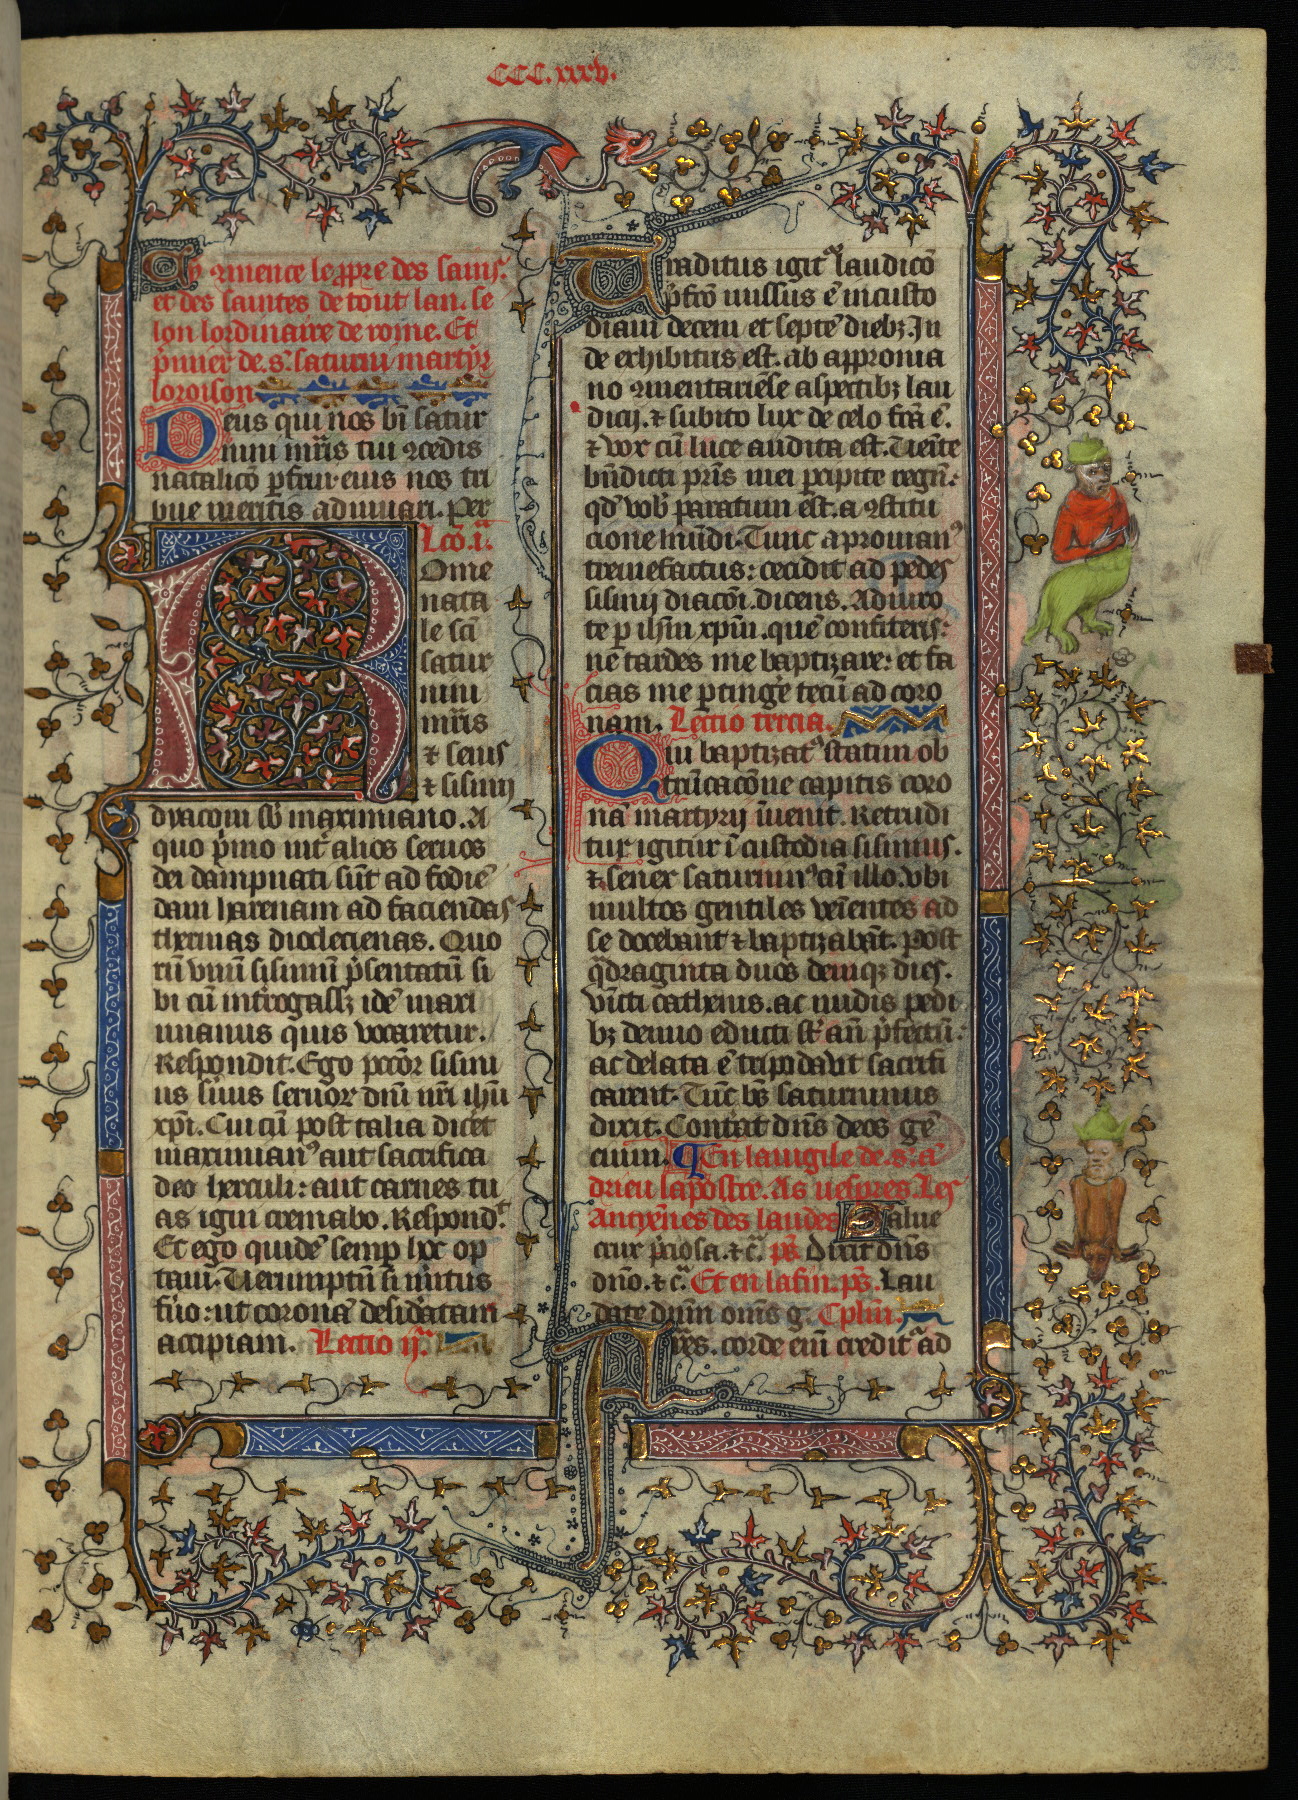 CCC.xxxv.
Cy 9mence le ppre des sains
et des saintes de tout lan. se
lon lordinaire de rome. Et
p̄mier de .s. saturnī martyr
loroison
Deus qui nos bt̄i satur
nini mr̄is tui 9cedis
natalicō p̄frui eius nos tri
bue meritis adiuuari. per
Lcō .i.ª
Rome
nata
le sc̄i
satur
nini
mr̄is
⁊ senis
⁊ sisinij
dyaconi sb̄ maximiano. A
quo p̄mo int̄ alios seruos
dei dampnati sūt ad fodiē
dam harenam ad faciendas
thermas dioclecienas. Quo
rū vnū sisinnū p̄sentatū si
bi cū int̄rogassꝫ idē maxi
mianus quis vocaretur.
Respondit. Ego pcc̄or sisini
us s̄uus seruor dn̄i nr̄i ihū
xp̄i. Cui cū post talia dic̄et
maximianꝰ aut sacrifica
deo herculi: aut carnes tu
as igni cremabo. Respond̄.
Et ego quidē semp hoc op
taui. Verumptn̄ si m̄itus
fūo: ut coronā desid̄atam
accipiam. Lectio ij.ª
Traditus igit᷑ laudicō
p̄fcō missus ē in custo
diam decem et septē diebꝫ. In
de exhibitus est. ab appronia
no 9mentariēse aspectibꝫ lau
dicij. ⁊ subito lux de celo fc̄a ē.
⁊ vox cū luce audita est. Veīte
bn̄dicti pr̄is mei p̄cipite regn̄.
qd̄ vob̄ paratum est. a 9stitu
cione mūdi. Tunc apronianꝰ
tremefactus: cecidit ad pedes
sisinij diacōi. dicens. Adiuro
te p ihm̄ xpm̄. quē confiteris:
ne tardes me baptizare: et fa
cias me ptinḡe tecū ad coro
nam. Lectio tercia.
Qui baptizatꝰ statim ob
trūcacōne capitis coro
nā martyrij īuenit. Retrudi
tur igitur ī custodia sisinius.
⁊ senex saturninꝰ cū illo. vbi
multos gentiles veīentes ad
se docebant ⁊ baptizabāt. Post
q̄draginta duos deniqꝫ dies.
vīcti cathenis. ac nudis pedi
bꝫ denuo educti st̄ an̄ p̄fectū:
ac delata ē tripida vt̄ sacrifi
carent. Tūc bt̄s saturninus
dixit. Contat dn̄s deos gē
cium. ¶ En la uigile de .s. ā
drieu lapostre. As uespres. Les
Antyēnes des laudes Salue
crux p̄ciosa. ⁊ c̄ª. p̄s. Dixit dn̄s
dn̄o. ⁊ c̄ª. Et en la fin. p̄s. Lau
date dn̄m om̄s ḡ. Cplm̄.
Fr̄es. corde enī credit᷑ ad